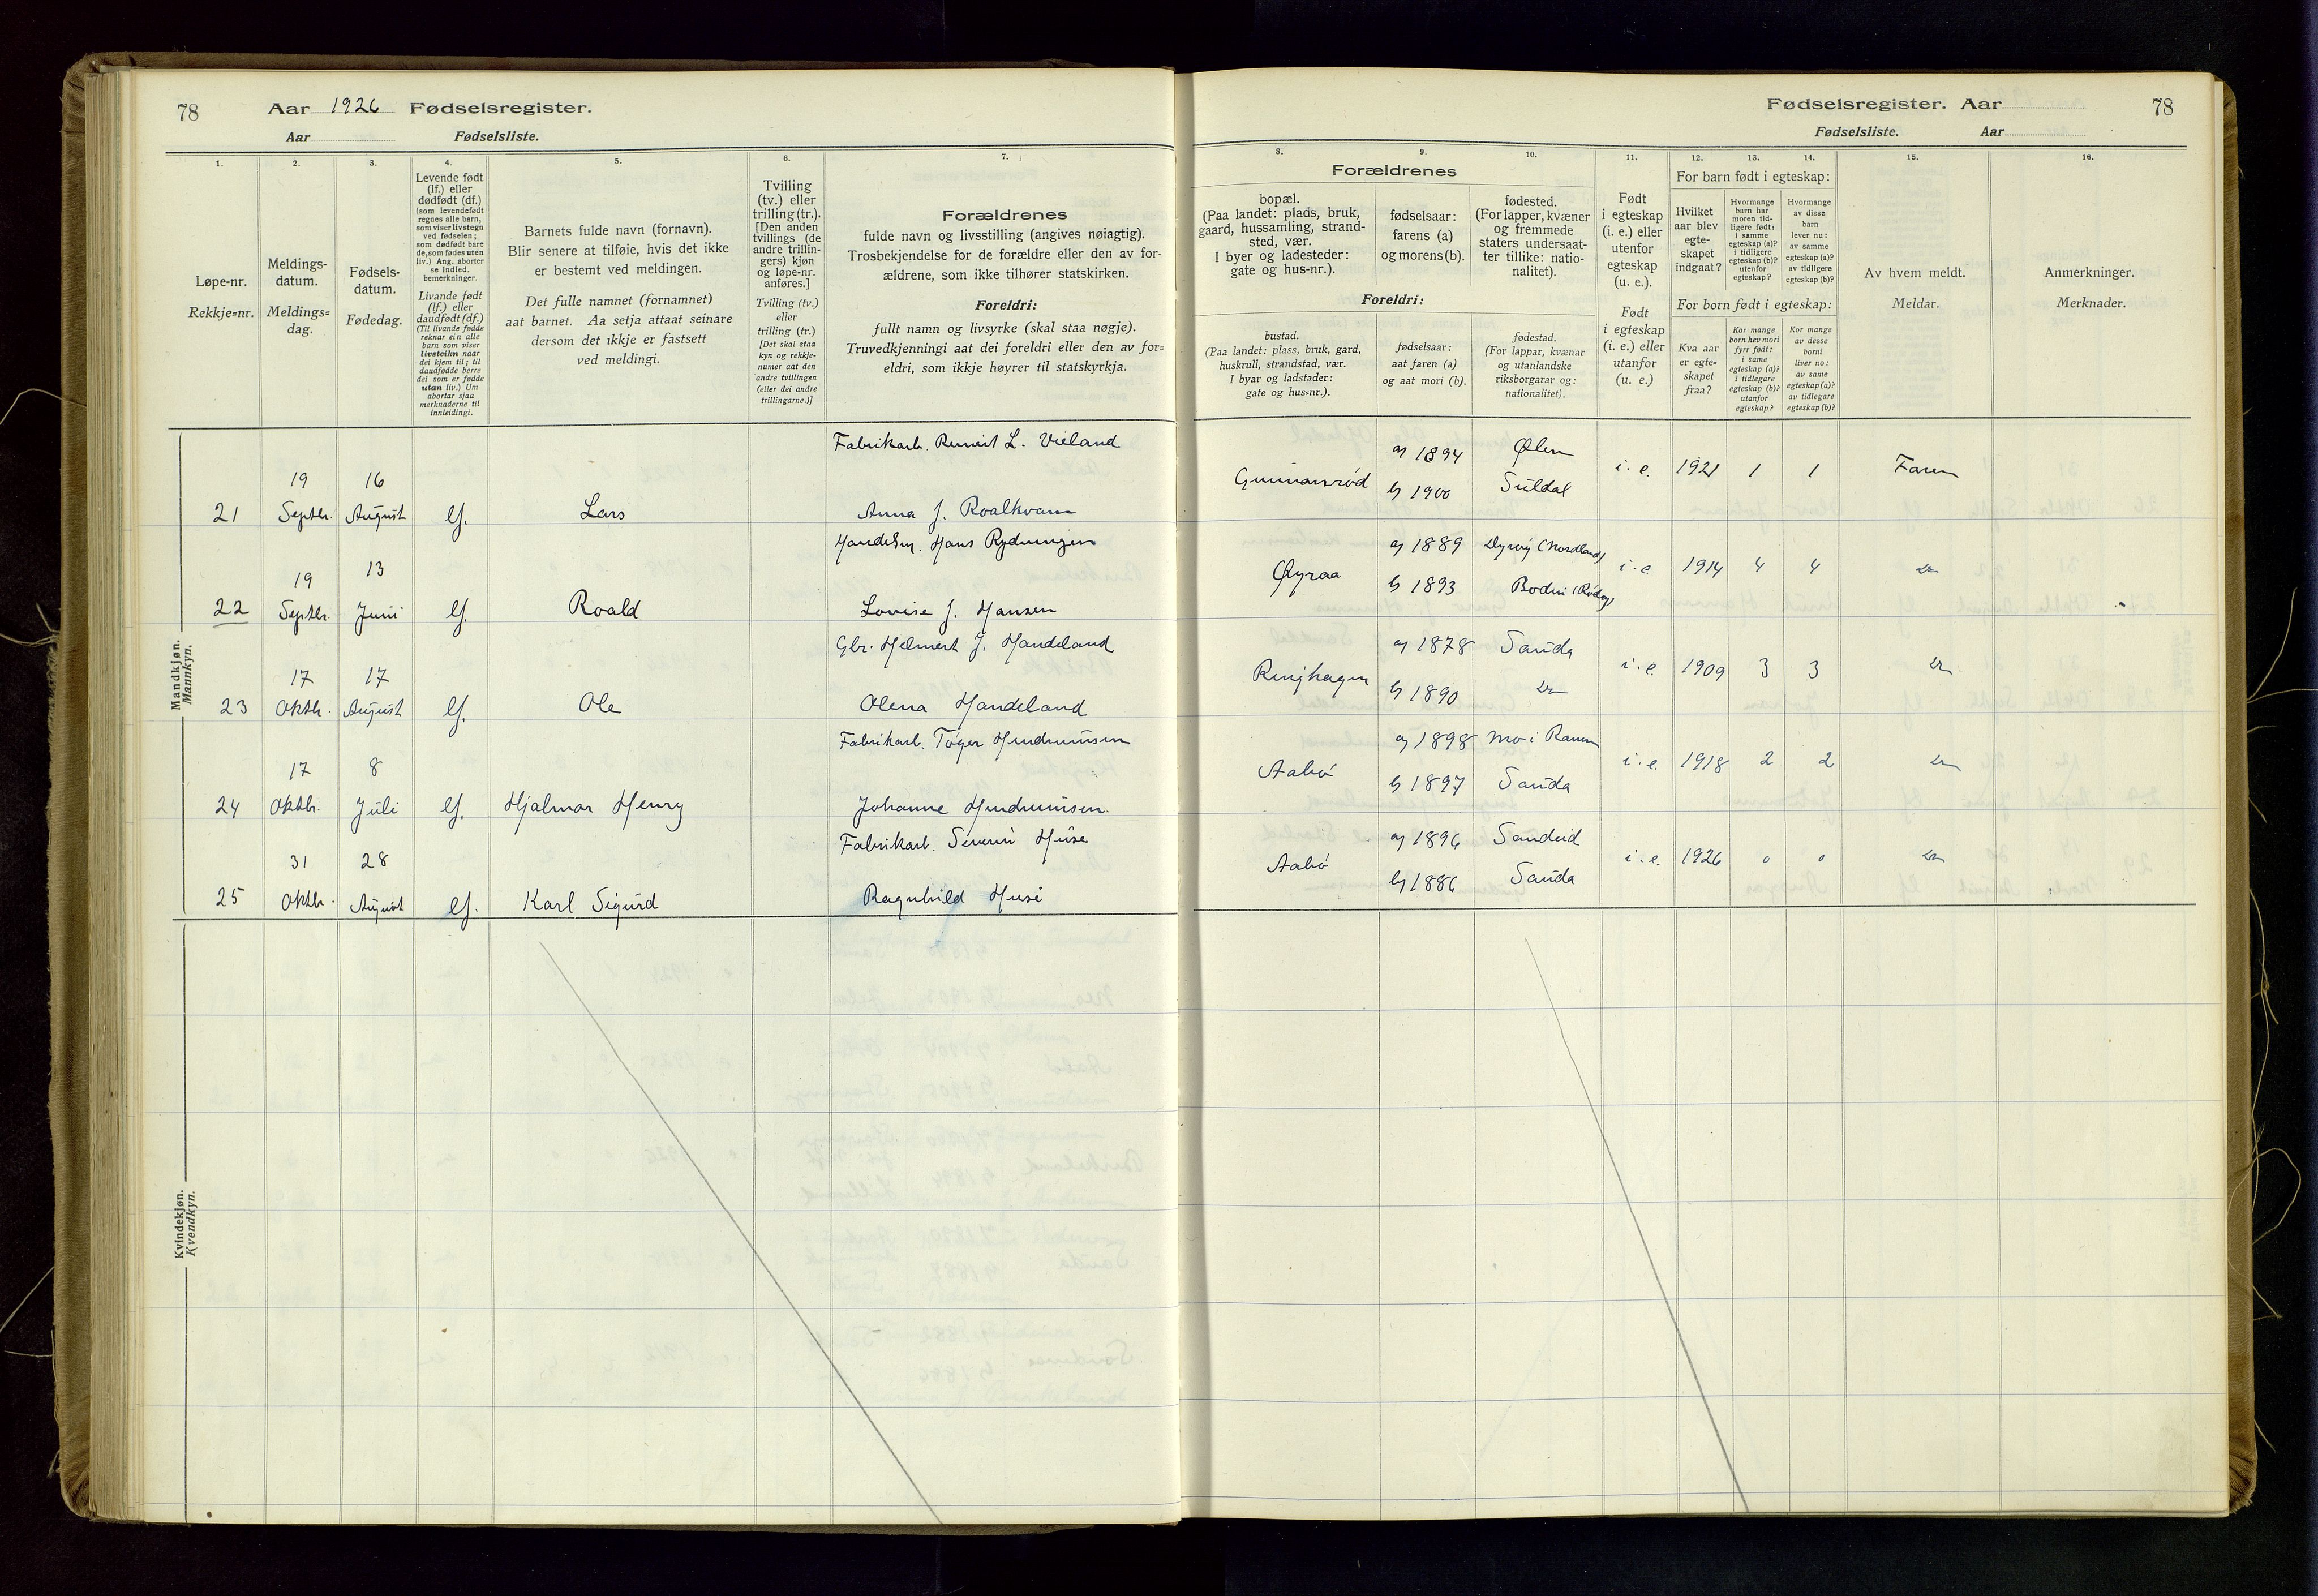 78 Aar 1926 Fødselsregister.
Aar Fødselsliste.
1. 2. 3. 4. 5. 6. 7.
Løpe-nr.
Rekkje=nr.
Meldings-
datum.
Meldings=
dag.
Fødsels-
datum.
Fødedag.
Levende født
(lf.) eller
dødfødt (df.)
(som levendefødt
regnes alle barn,
som viser livstegn
ved fødselen;
som dødfødt bare
de, som fødes uten
liv.) Ang. aborter
se indled.
bemerkninger.
Livande født
(lf.) eller
daudfødt (df.)
(Til livande fødde
reknar ein alle
barn som viser
livsteikn naar
dei kjem til; til
daudfødde berre
dei som er fødde
utan liv.) Um
abortar sjaa
merknaderne til
innleidingi.
Barnets fulde navn (fornavn).
Blir senere at tilføie, hvis det ikke
er bestemt ved meldingen.
Det fulle namnet (fornamnet)
aat barnet. Aa setja attaat seinare
dersom det ikkje er fastsett
ved meldingi.
Tvilling
(tv.) eller
trilling (tr.).
[Den anden
tvillings (de
andre trillin-
gers) kjøn
og løpe-nr.
anføres.]
Tvilling (tv.)
eller
trilling (tr.)
[Det skal staa
kyn og rekkje-
numer aat den
andre tvillingen
(eller dei andre
trillingarne.)]
Forældrenes
fulde navn og livsstilling (angives nøiagtig).
Trosbekjendelse for de forældre eller den av for-
ældrene, som ikke tilhører statskirken.
Foreldri:
fullt namn og livsyrke (skal staa nøgje).
Truvedkjenningi aat dei foreldri eller den av for=
eldri, som ikkje høyrer til statskyrkja.
Mandkjøn.
Mannkyn.
Fabrikarb. L. Vieland
19 16
21 Septbr. August lf. Lars Anna J. Roalkvam
Handelsm. Hans Rydningen
19 13
22 Septbr. Juni lf. Roald Lovise J. Hansen
Gbr. Helmert J. Handeland
17 17
23 Oktbr. August lf. Ole Olena Handeland
Fabrikarb. Tøger Hendrumsen
17 8
24 Oktbr. Juli lf. Hjalmar Henry Johanne Hendrumsen.
Fabrikarb. Severin Huse
31 28
25 Oktbr. August lf. Karl Sigurd Ragnhild Huse
Kvindekjøn.
Kvendkyn.
Fødselsregister. Aar 78
Fødselsliste. Aar
8. 9. 10. 11. 12. 13. 14. 15. 16.
Forældrenes
bopæl.
(Paa landet: plads, bruk,
gaard, hussamling, strand-
sted, vær.
I byer og ladesteder:
gate og hus-nr.).
fødselsaar:
farens (a)
og morens (b).
fødested.
(For lapper, kvæner
og fremmede
staters undersaat-
ter tillike: natio-
nalitet).
Foreldri:
bustad.
(Paa landet: plass, bruk, gard,
huskrull, strandstad, vær.
I byar og ladstader:
gate og hus=nr.).
fødselsaar:
aat faren (a)
og aat mori (b).
fødestad.
(For lappar, kvænar
og utanlandske
riksborgarar og:
nationalitet).
Født
i egteskap
(i. e.) eller
utenfor
egteskap
(u. e.).
Født
i egteskap
(i. e.) eller
utanfor
(u. e.)
For barn født i egteskap:
Hvilket
aar blev
egte-
skapet
indgaat?
Hvormange
barn har
moren tid-
ligere født:
i samme
egteskap (a)?
i tidligere
egteskap (b)?
utenfor
egteskap?
Hvormange
av disse
barn
lever nu:
av samme
egteskap (a)?
av tidligere
egteskap (b)?
For born født i egteskap:
Kva aar
er egte=
skapet
fraa?
Kor mange
born hev mori
fyrr født:
i same
egteskap (a)?
i tidlegare
egteskap (b)?
utanfor
egteskap?
Kor mange
av desse
borni
liver no:
av same
egteskap (a)?
av tidlegare
egteskap (b)?
Av hvem meldt.
Meldar.
Anmerkninger.
Merknader.
a) 1894 Ølen
Gunnarsrød i. e. 1921 1 1 Faren
b) 1900 Suldal
a) 1889 Dyrøy (Nordland)
Øyraa i. e. 1914 4 4 Do
b) 1893 Bodin (Rødøy)
a) 1878 Sauda
Ringhagen i. e. 1909 3 3 Do
b) 1890 Do
a) 1898 Mo i Ranen
Aabø i. e. 1918 2 2 Do
b) 1897 Sauda
a) 1896 Sandeid
Aabø i. e. 1926 0 0 Do
b) 1886 Sauda